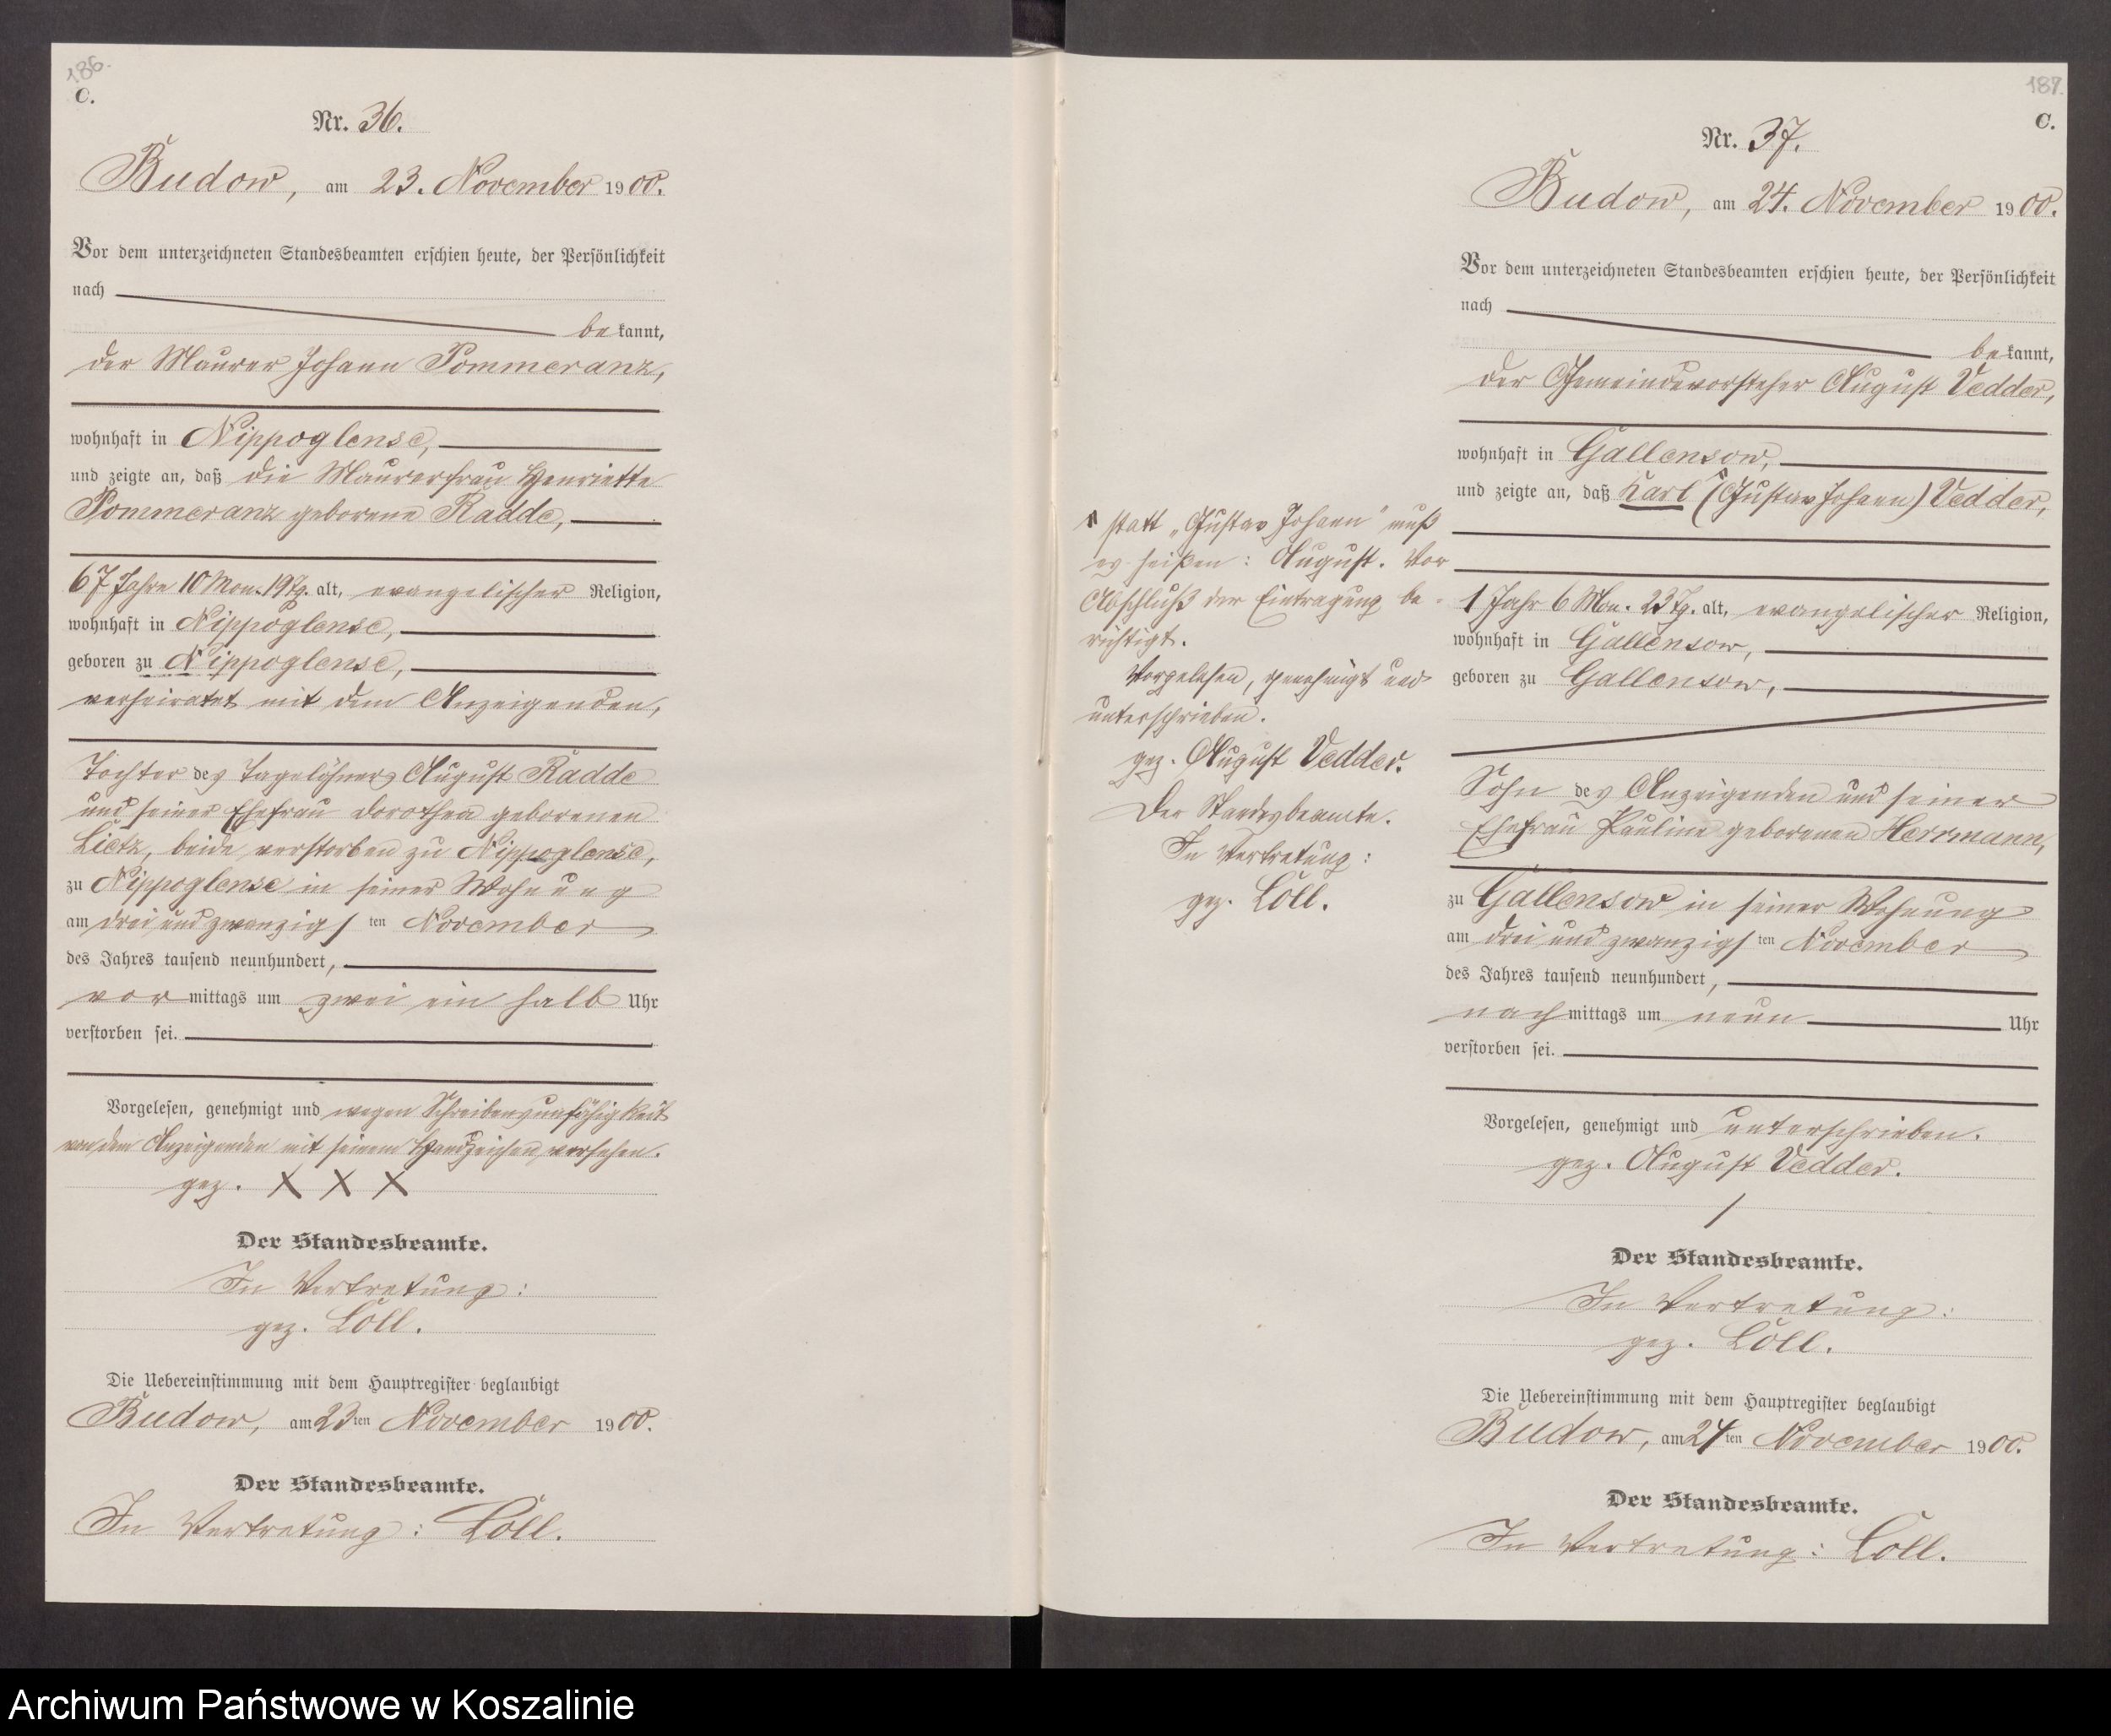 186.
C.
Nr. 36.
Budow, am 23. November 1900.
Vor dem unterzeichneten Standesbeamten erschien heute, der Persönlichkeit
nach
bekannt,
der Maurer Johann Pommeranz,
wohnhaft in Nippoglense,
und zeigte an, daß die Maurerfrau Henriette
Pommeranz geborene Radde,
67 Jahre 10 Mon. 19 Tg. alt, evangelischer Religion,
wohnhaft in Nippoglense,
geboren zu Nippoglense,
verheiratet mit dem Anzeigenden,
Tochter des Tagelöhners August Radde
und seiner Ehefrau Dorothea geborenen
Lietz, beide verstorben zu Nippoglense,
zu Nippoglense in seiner Wohnung
am drei und zwanzigsten November
des Jahres tausend neunhundert,
vormittags um zwei ein halb Uhr
verstorben sei.
Vorgelesen, genehmigt und wegen Schreibensunfähigkeit
von dem Anzeigenden mit seinem Handzeichen versehen.
gez. X X X
Der Standesbeamte.
In Vertretung:
gez. Löll.
Die Uebereinstimmung mit dem Hauptregister beglaubigt
Budow, am 23ten November 1900.
Der Standesbeamte.
In Vertretung: Löll.
187.
C.
Nr. 37.
Budow, am 24. November 1900.
Vor dem unterzeichneten Standesbeamten erschien heute, der Persönlichkeit
nach
bekannt,
der Gemeindevorsteher August Vedder,
wohnhaft in Gallensow,
und zeigte an, daß Karl (Gustav Johann) Vedder,
1 Jahr 6 Mon. 23 Tg. alt, evangelischer Religion,
wohnhaft in Gallensow,
geboren zu Gallensow,
Sohn des Anzeigenden und seiner
Ehefrau Pauline geborenen Herrmann,
zu Gallensow in seiner Wohnung
am drei und zwanzigsten November
des Jahres tausend neunhundert,
nachmittags um neun Uhr
verstorben sei.
Vorgelesen, genehmigt und unterschrieben.
gez. August Vedder.
Der Standesbeamte.
In Vertretung:
gez. Löll.
Die Uebereinstimmung mit dem Hauptregister beglaubigt
Budow, am 24ten November 1900.
Der Standesbeamte.
In Vertretung: Löll.
statt „Gustav Johann" muß
es heißen: August. Vor
Abschluß der Eintragung be-
richtigt.
Vorgelesen, genehmigt und
unterschrieben.
gez. August Vedder.
Der Standesbeamte.
In Vertretung:
gez. Löll.
Archiwum Państwowe w Koszalinie